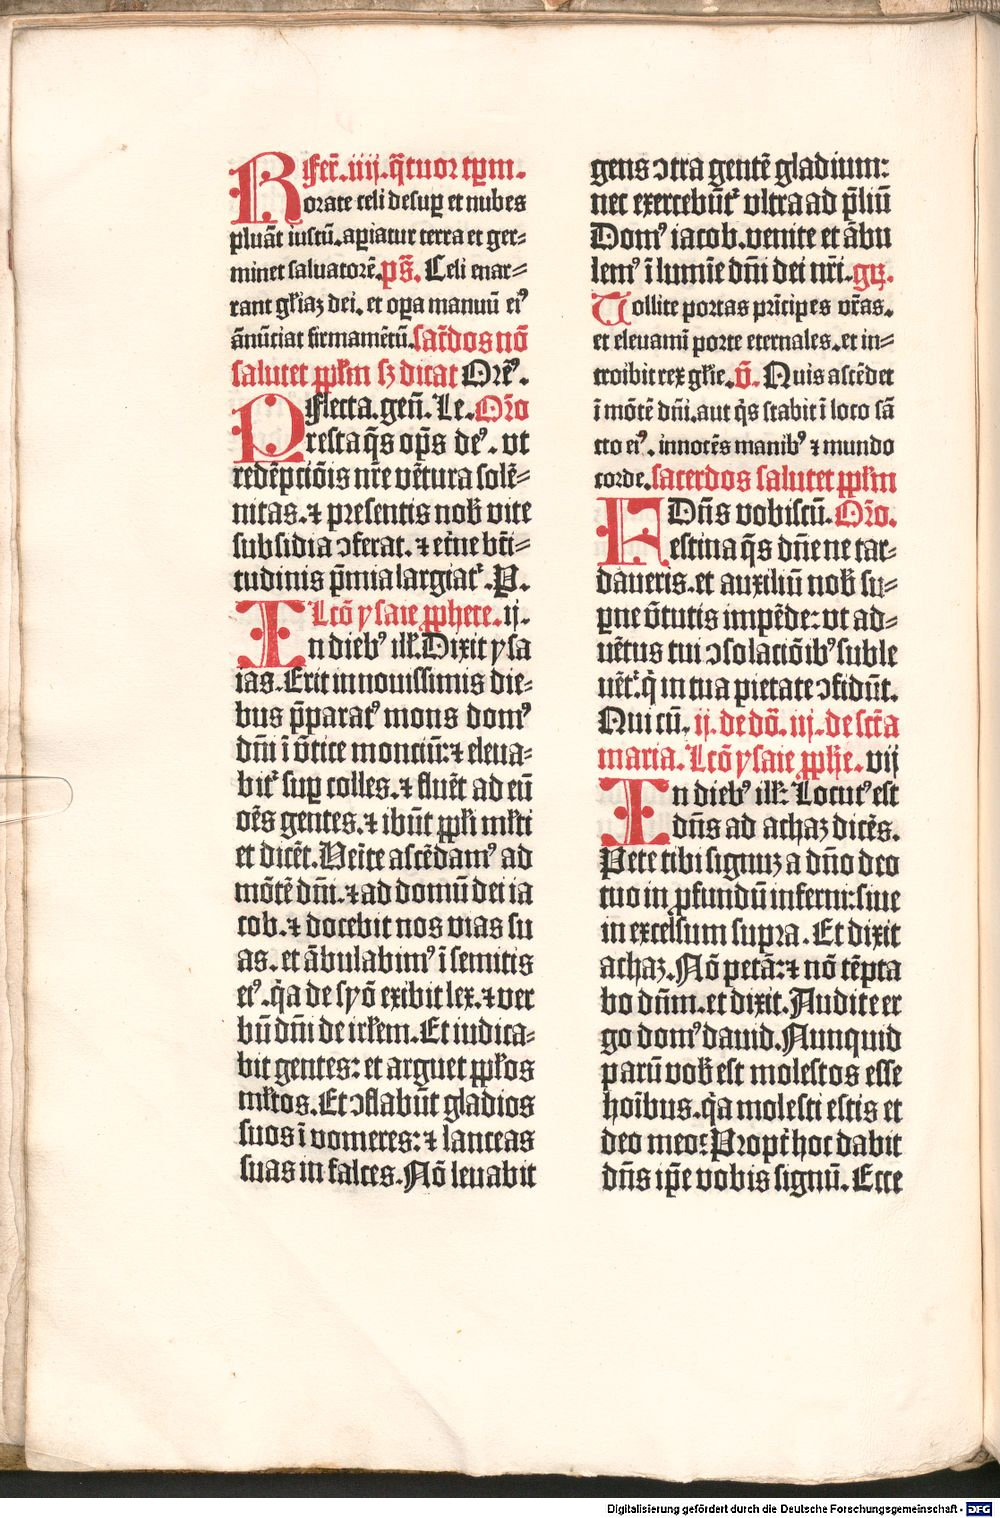 Fer̃. iiij. q̃tuor tp̱m.
Rorate celi desup̱ et nubes
pluãt iustũ. ap̱iatur terra et ger-
minet saluatorẽ. ps̃. Celi enar-
rant gl̃iaꝫ dei. et op̱a manuũ eiꝰ
ãnũciat firmamẽtũ. sac̃dos nõ
salutet pp̱l̃m sꝫ dicat Orẽꝰ.
Flecta. geñ. Le. Orõ
Presta q̃s op̃s deꝰ. vt
redẽpcõis nr̃e vẽtura solẽ-
nitas. ⁊ presentis nob̃ vite
subsidia ↄferat. ⁊ etñe bt̃i-
tudinis p̃mia largiat᷑. P.
Lcõ ysaie p̱phete. ij.
In diebꝰ ill̃. Dixit ysa
ias. Erit in nouissimis die-
bus p̃paratꝰ mons domꝰ
dñi ĩ v̓tice monciũ: ⁊ eleua-
bit᷑ sup̱ colles. ⁊ fluẽt ad eũ
oẽs gentes. ⁊ ibũt pp̱l̃i ml̃ti
et dicẽt. Veñte ascẽdamꝰ ad
mõtẽ dñi. ⁊ ad domũ dei ia
cob. ⁊ docebit nos vias su
as. et ãbulabimꝰ ĩ semitis
eiꝰ. q̃a de syõ exibit lex. ⁊ ver
bũ dñi de irl̃em. Et iudica-
bit gentes: et arguet pp̱l̃os
ml̃tos. Et ↄflabũt gladios
suos ĩ vomeres: ⁊ lanceas
suas in falces. Nõ leuabit
gens ↄtra gentẽ gladium:
nec exercebũt᷑ vltra ad p̃liũ
Domꝰ iacob. venite et ãbu
lemꝰ ĩ lumĩe dñi dei nr̃i. gꝛ.
Tollite portas pr̃icipes vr̃as.
et eleuami porte eternales. et in-
troibit rex gl̃ie. v̓. Quis ascẽdet
ĩ mõtẽ dñi. aut q̃s stabit ĩ loco sã
cto eiꝰ. innocẽs manibꝰ ⁊ mundo
corde. sacerdos salutet pp̱l̃m
Dñs vobiscũ. Orõ.
Festina q̃s dñe ne tar-
daueris. et auxiliũ nob̃ su-
p̱ne v̓tutis impẽde: vt ad-
uẽtus tui ↄsolaciõibꝰ suble
uẽt᷑. q̃ in tua pietate ↄfidũt.
Qui cũ. ij. de dõ. iij. de sct̃a
maria. Lcõ ysaie p̱ph̃e. vij
In diebꝰ ill̃: Locutꝰ est
dñs ad achaz dicẽs.
Pete tibi signuꝫ a dño deo
tuo in p̱fundũ inferni: siue
in excelsum supra. Et dixit
achaz. Nõ petã: ⁊ nõ tẽpta
bo dñm. et dixit. Audite er
go domꝰ dauid. Nunquid
parũ vob̃ est molestos esse
hoĩbus. q̃a molesti estis et
deo meo: Propt̓ hoc dabit
dñs ip̃e vobis signũ. Ecce
Digitalisierung gefördert durch die Deutsche Forschungsgemeinschaft - DFG